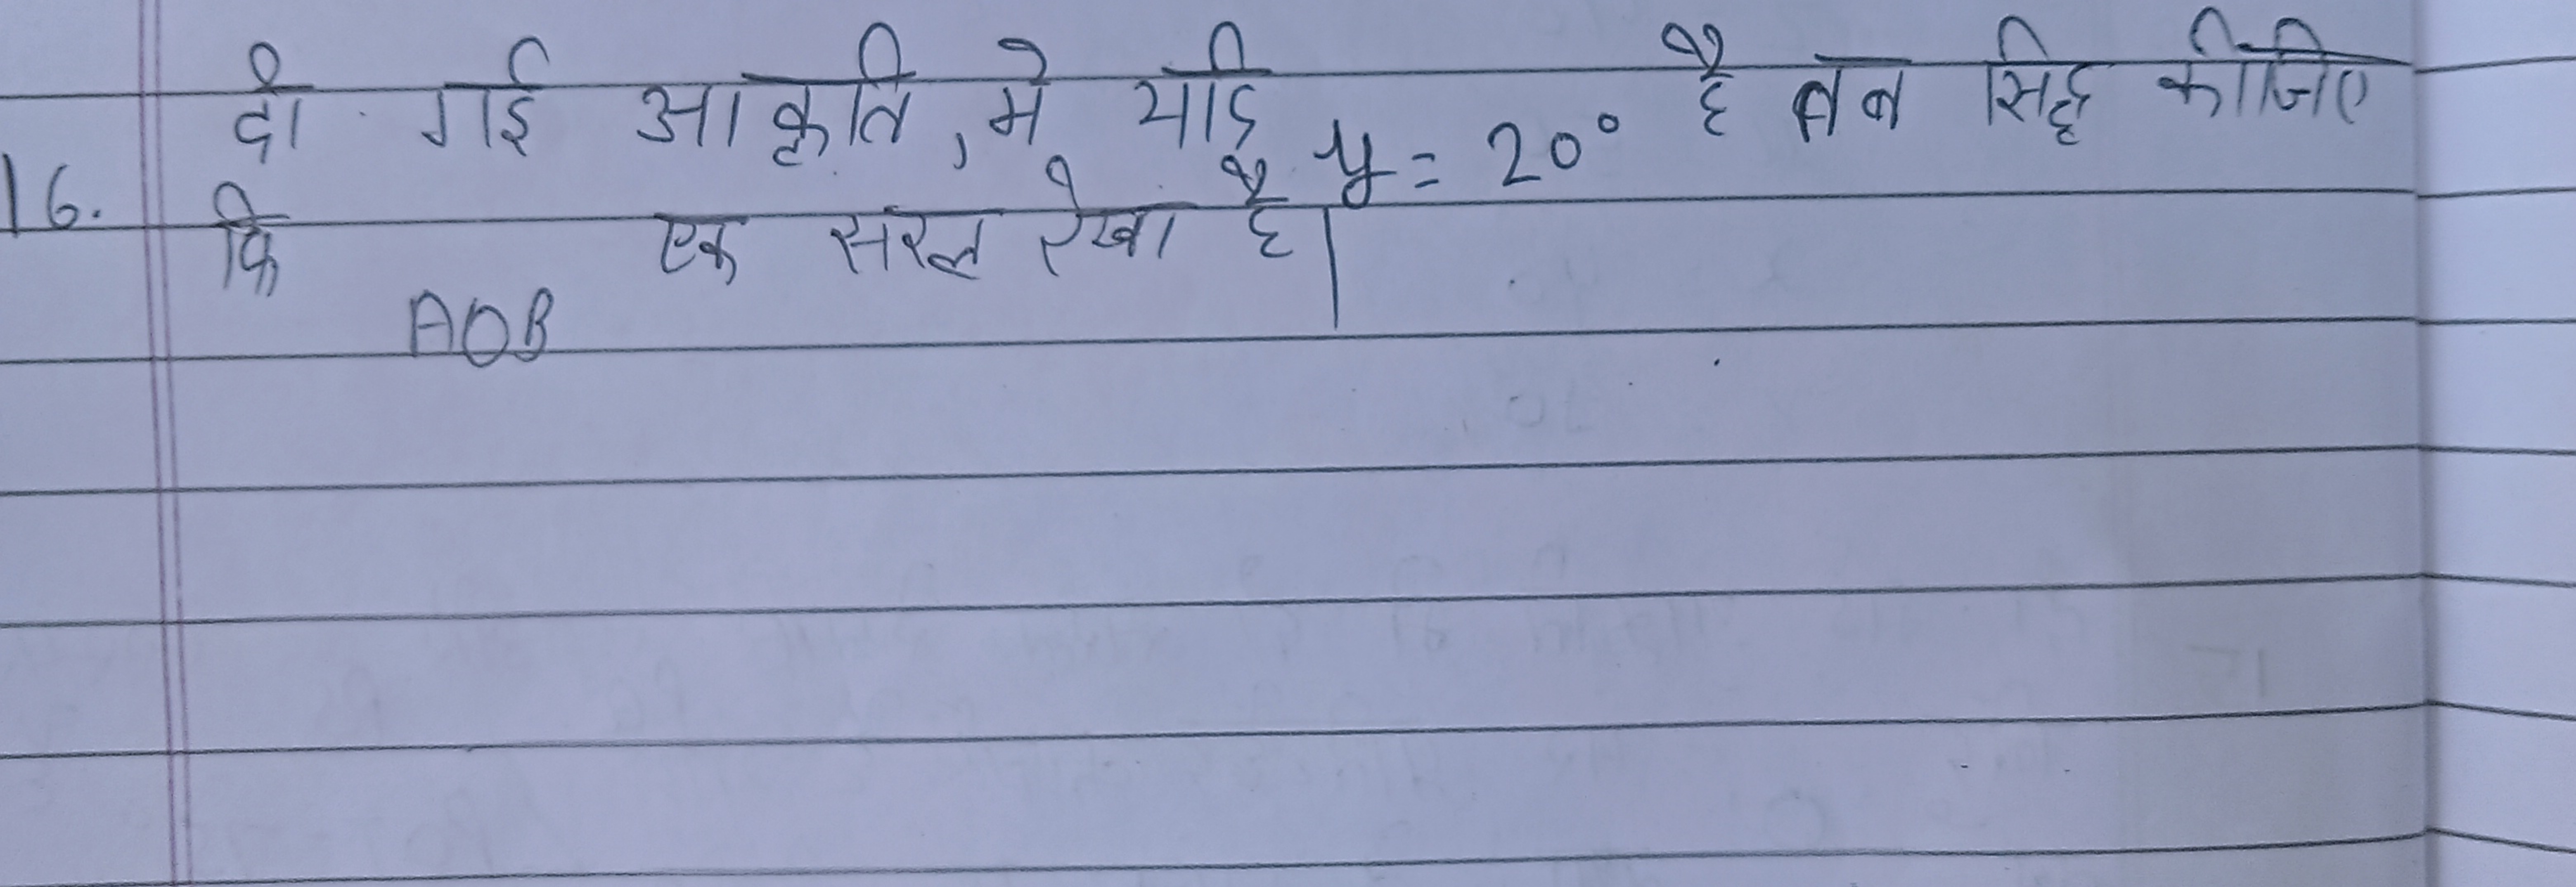 16. दी गई आकृति, में यदि y = 20° है तब सिद्ध कीजिए
कि AOB एक सरल रेखा है।